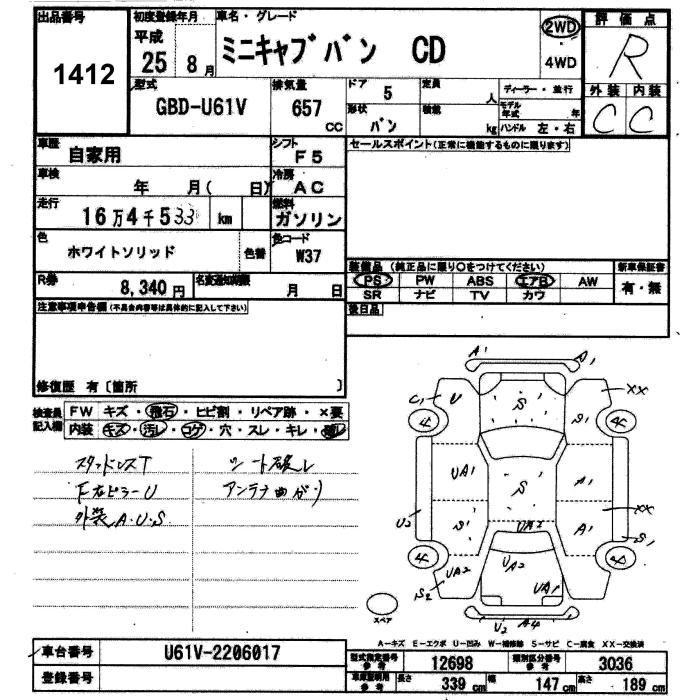 出品番号
1412
初度登録年月
平成
25年 8月
車名・グレード
ミニキャブバン CD
2WD
4WD
評価点
R
外装 内装
C C
型式
GBD-U61V
排気量
657 cc
ドア
5
定員
人
形状
バン
積載
kg
ディーラー・並行
モデル年式 年
ハンドル 左・右
車歴
自家用
シフト
F5
車検
年 月( 日)
冷房
AC
走行
16万4千533 km
燃料
ガソリン
色
ホワイトソリッド
色替
色コード
W37
R券
8,340円
名変通知期限
月 日
セールスポイント(正常に機能するものに限ります)
装備品(純正品に限り○をつけてください)
PS PW ABS エアB AW
SR ナビ TV カワ
新車保証書
有・無
後日品
注意事項申告欄(不具合内容等は具体的に記入して下さい)
修復歴 有〔箇所 〕
検査員記入欄
FW キズ・飛石・ヒビ割・リペア跡・×要
内装 キズ・汚レ・コゲ・穴・スレ・キレ・
スタッドレスT
F右ピラーU
外装A.U.S.
シート破レ
アンテナ曲がり
A1 A1
C1 U S A1 XX
4 4
UA1 S A1
U2 S1 UA2 A1 XX
S1
4 4
UA2 UA2 UA1
S2
U2 A4
スペア
A−キズ E−エクボ U−凹み W−補修跡 S−サビ C−腐食 XX−交換済
車台番号
U61V-2206017
登録番号
型式指定番号 参考
12698
類別区分番号 参考
3036
車庫証明用 参考
長さ 339 cm 幅 147 cm 高さ 189 cm